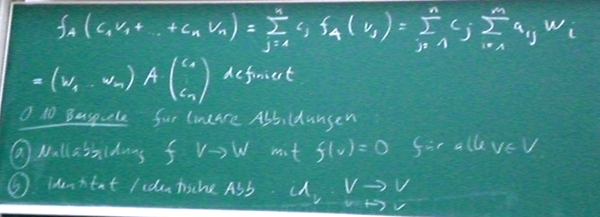 f_A (c₁v₁ + ... + cₙ vₙ) = Σ_{j=1}^{n} c_j f_A (v_j) = Σ_{j=1}^{n} c_j Σ_{i=1}^{m} a_{ij} w_i
= (w₁ .. w_m) A · (c₁ ⋮ cₙ) definiert
0.10 Beispiele für lineare Abbildungen:
(a) Nullabbildung f: V → W mit f(v) = 0 für alle v ∈ V
(b) Identität / identische Abb. id_V : V → V
v ↦ v